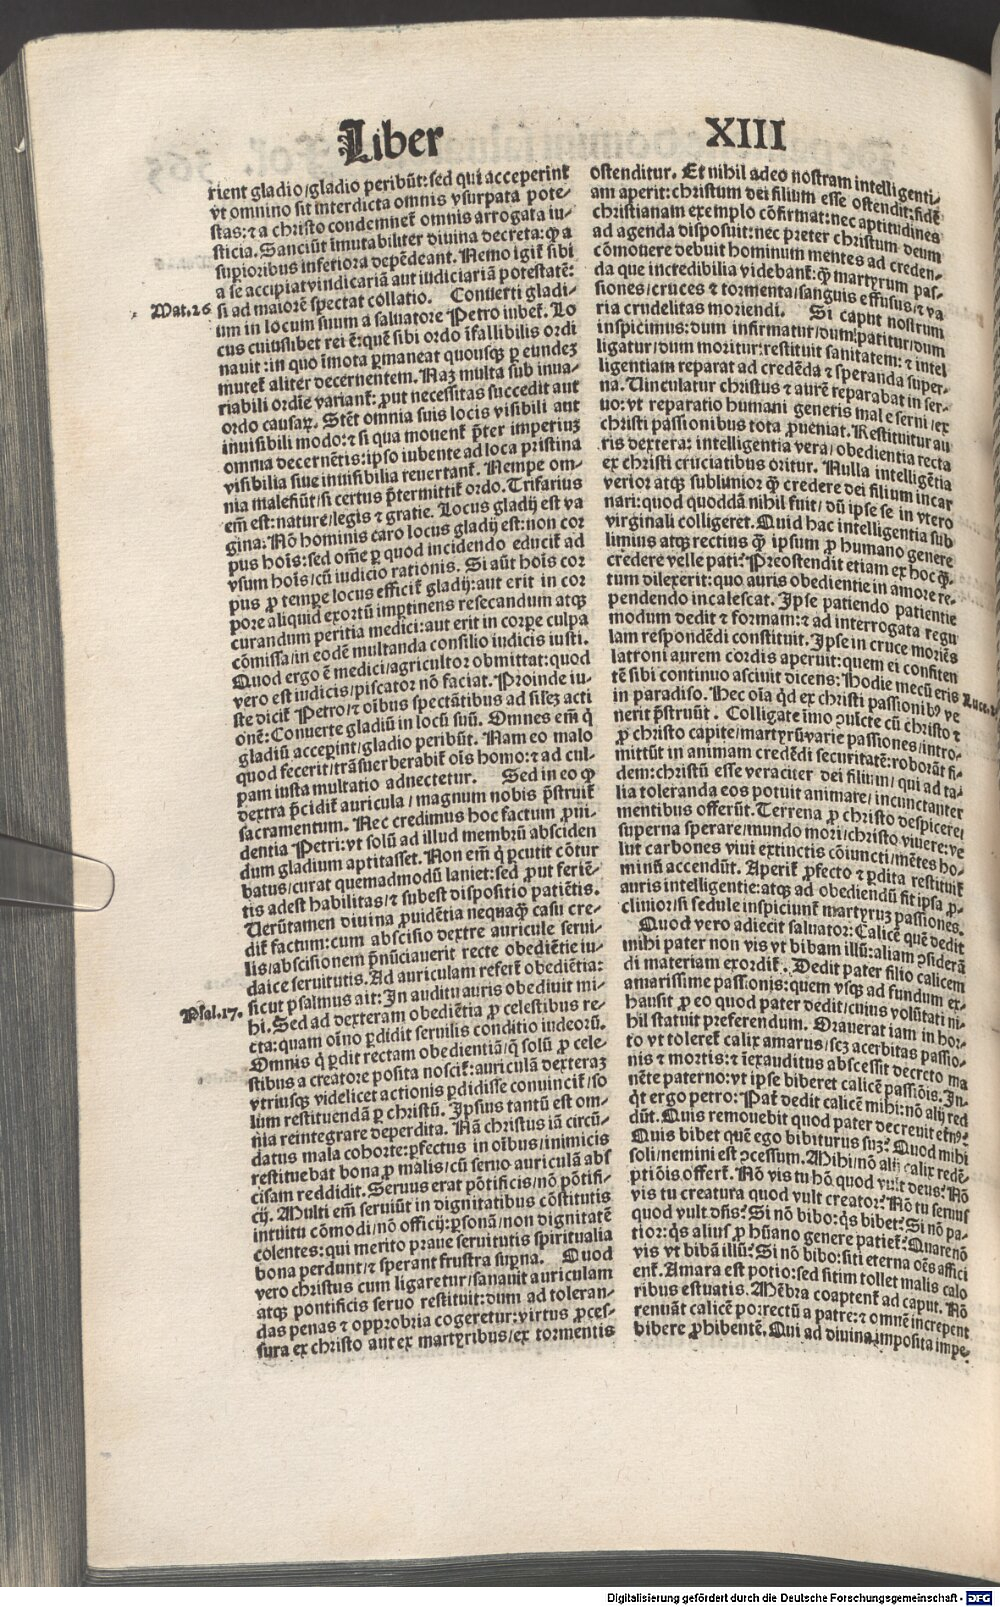 Liber XIII
rient gladio/gladio peribūt: sed qui acceperint
vt omnino sit interdicta omnis vsurpata pote-
stas: ⁊ a christo condemnet̄ omnis arrogata iu-
sticia. Sanciūt īmutabiliter diuina decreta: qͥ a
supioribus inferiora depēdeant. Nemo igit̄ sibi
a se accipiat vindicariā aut iudiciariā potestatē:
Mat.26
si ad maiorē spectat collatio. Conuerti gladi-
um in locum suum a saluatore Petro iubet̄. Lo
cus cuiuslibet rei ē: quē sibi ordo īfallibilis ordi
nauit: in quo īmota ꝑmaneat quousqꝫ ꝑ eundeꝫ
mutet̄ aliter decernentem. Naꝫ multa sub inua-
riabili ordīe variant̄: ꝓut necessitas succedit aut
ordo causaꝝ. Stēt omnia suis locis visibili aut
inuisibili modo: ⁊ si qua mouent̄ p̄ter imperiuꝫ
omnia decernētis: ipso iubente ad loca pristina
visibilia siue inuisibilia reuertant̄. Nempe om-
nia malefiūt/si certus p̄termittit̄ ordo. Trifarius
em̄ est: nature/legis ⁊ gratie. Locus gladij est va
gina: Nō hominis caro locus gladij est: non cor
pus hoīs: sed om̄e ꝑ quod incidendo educit̄ ad
vsum hoīs/cū iudicio rationis. Si aūt hoīs cor
pus ꝓ tempe locus efficit̄ gladij: aut erit in cor
pore aliquid exortū imptinens resecandum atqꝫ
curandum peritia medici: aut erit in corpe culpa
cōmissa/in eodē multanda consilio iudicis iusti.
Quod ergo ē medici/agricultor obmittat: quod
vero est iudicis/piscator nō faciat. Proinde iu-
ste dicit̄ Petro/⁊ oībus spectātibus ad silez acti
onē: Conuerte gladiū in locū suū. Omnes em̄ q̄
gladiū accepint/gladio peribūt. Nam eo malo
quod fecerit/trāsuerberabit̄ oīs homo: ⁊ ad cul-
pam iusta multatio adnectetur. Sed in eo qͥ
dextra p̄cidit̄ auricula/magnum nobis p̄struit̄
sacramentum. Nec credimus hoc factum ꝓui-
dentia Petri: vt solū ad illud membrū absciden
dum gladium aptitasset. Non em̄ q̄ ꝑcutit cōtur
batus/curat quemadmodū laniet: sed ꝓut feriē-
tis adest habilitas/⁊ subest dispositio patiētis.
Uerūtamen diuina ꝓuidētia nequaq̄ casu cre-
dit̄ factum: cum abscisio dextre auricule serui-
lis/abscisionem p̄nūciauerit recte obediētie iu-
daice seruitutis. Ad auriculam refert̄ obediētia:
Psal.17.
sicut psalmus ait: In auditu auris obediuit mi-
hi. Sed ad dexteram obediētia ꝓ celestibus re-
cta: quam oīno ꝑdidit seruilis conditio iudeorū.
Omnis q̄ ꝑdit rectam obedientiā/q̄ solū ꝓ cele-
stibus a creatore posita noscit̄: auriculā dexteraꝫ
vtriusqꝫ videlicet actionis ꝑdidisse conuincit̄/so
lum restituendā ꝑ christū. Ipsius tantū est om-
nia reintegrare deperdita. Nā christus iā circū-
datus mala cohorte: ꝑfectus in oībus/inimicis
restituebat bona ꝓ malis/cū seruo auriculā abs
cisam reddidit. Seruus erat pōtificis/nō pōtifi-
cij. Multi em̄ seruiūt in dignitatibus cōstitutis
intuitu cōmodi/nō officij: ꝑsonā/non dignitatē
colentes: qui merito praue seruitutis spiritualia
bona perdunt/⁊ sperant frustra supna. Quod
vero christus cum ligaretur/sanauit auriculam
atqꝫ pontificis seruo restituit: dum ad toleran-
das penas ⁊ opprobria cogeretur: virtus ꝓces-
sura ex christo aut ex martyribus/ex tormentis
ostenditur. Et nihil adeo nostram intelligenti-
am aperit: christum dei filium esse ostendit: fidē
christianam exemplo cōfirmat: nec aptitudines
ad agenda disposuit: nec preter christum deum
cōmouere debuit hominum mentes ad creden-
da que incredibilia videbant̄: q̄ martyrum pas-
siones/cruces ⁊ tormenta/sanguis effusus/⁊ va
ria crudelitas moriendi. Si caput nostrum
inspicimus: dum infirmatur/dum patitur/dum
ligatur/dum moritur: restituit sanitatem: ⁊ intel
ligentiam reparat ad credēda ⁊ speranda super-
na. Uinculatur christus ⁊ aurē reparabat in ser-
uo: vt reparatio humani generis male serui/ex
christi passionibus tota ꝓueniat. Restituitur au
ris dextera: intelligentia vera/obedientia recta
ex christi cruciatibus oritur. Nulla intelligētia
verior atqꝫ sublimior q̄ credere dei filium incar
nari: quod quoddā nihil fuit/dū ipse se in vtero
virginali colligeret. Quid hac intelligentia sub
limius atqꝫ rectius q̄ ipsum ꝓ humano genere
credere velle pati? Preostendit etiam ex hoc q̄-
tum dilexerit: quo auris obedientie in amore re-
pendendo incalescat. Ipse patiendo patientie
modum dedit ⁊ formam: ⁊ ad interrogata regu
lam respondēdi constituit. Ipse in cruce moriēs
latroni aurem cordis aperuit: quem ei confiten
tē sibi continuo asciuit dicens: Hodie mecū eris
Luce.2
in paradiso. Hec oīa q̄d ex christi passionibꝰ ve
nerit p̄struūt. Colligate īmo ꝯuīcte cū christo ⁊
ꝓ christo capite/martyrū varie passiones/intro-
mittūt in animam credēdi securitatē: roborāt fi-
dem: christū esse veraciter dei filium/qui ad ta-
lia toleranda eos potuit animare/incunctanter
mentibus offerūt. Terrena ꝓ christo despicere/
superna sperare/mundo mori/christo viuere: ve
lut carbones viui extinctis cōiuncti/mētes ho-
minū accendūt. Aperit̄ ꝓfecto ⁊ ꝑdita restituit̄
auris intelligentie: atqꝫ ad obediendū fit ipsa ꝓ-
cliuior/si sedule inspiciunt̄ martyruꝫ passiones.
Quod vero adiecit saluator: Calicē quē dedit
mihi pater non vis vt bibam illū: aliam ꝯsiderā
di materiam exordit̄. Dedit pater filio calicem
amarissime passionis: quem vsqꝫ ad fundum ex-
hausit ꝓ eo quod pater dedit/cuius volūtati ni-
hil statuit preferendum. Orauerat iam in hor-
to vt toleret̄ calix amarus/scꝫ acerbitas passio-
nis ⁊ mortis: ⁊ īexauditus abscessit decreto ma
nēte paterno: vt ipse biberet calicē passiōis. In-
q̄t ergo petro: Pat̄ dedit calicē mihi: nō alij red
dūt. Quis remouebit quod pater decreuit etn̄ꝰ?
Quis bibet quē ego bibiturus suꝫ? Quod mihi
soli/nemini est ꝯcessum. Mihi/nō alij calix redē-
ptiōis offert̄. Nō vis tu hō quod vult deus? Nō
vis tu creatura quod vult creator? Nō tu seruus
quod vult dn̄s? Si nō bibo: q̄s bibet? Si nō pa-
tior: q̄s alius ꝓ hūano genere patiet̄? Quare nō
vis vt bibā illū? Si nō bibo: siti eterna oēs affici
ent̄. Amara est potio: sed sitim tollet malis calo
ribus estuatis. Mēbra coaptent̄ ad caput. Nō
renuāt calicē porrectū a patre: ⁊ omnē increpent
bibere ꝓhibentē. Qui ad diuina imposita impe-
Digitalisierung gefördert durch die Deutsche Forschungsgemeinschaft - DFG